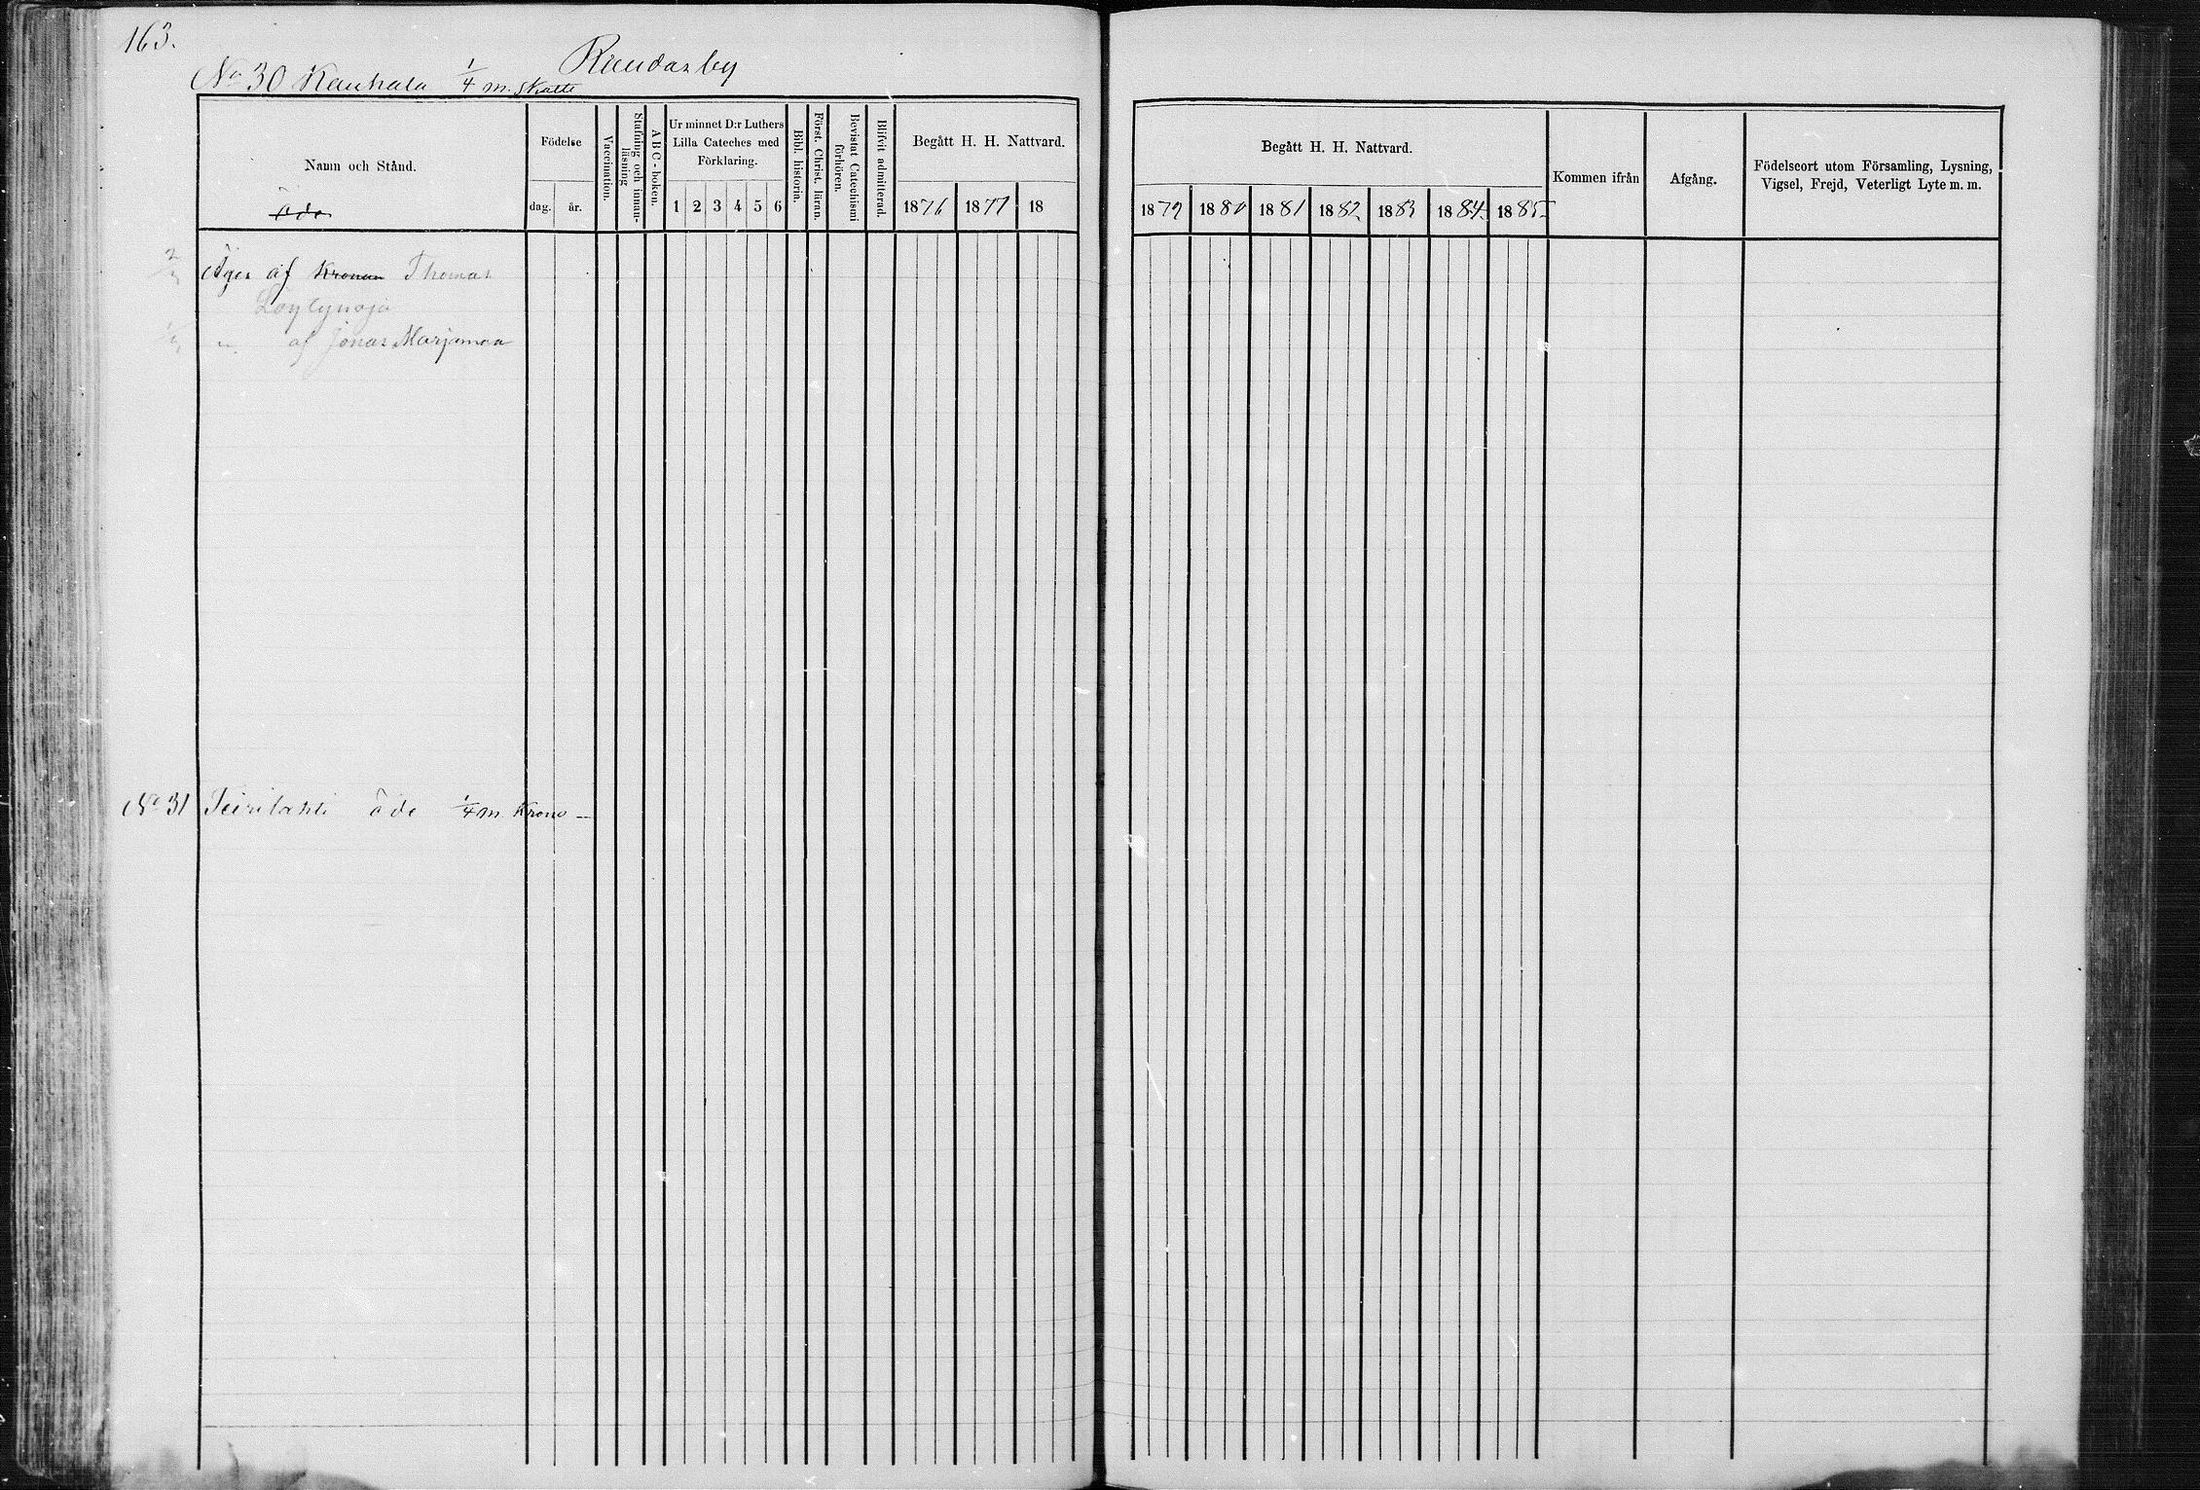 163.
Ruudarby
No 30 Kauhala 1/4 m. skatte
Namn och Stånd.
öde
Födelse
dag. år.
Vaccination.
Stafning och innan-
läsning
ABC-boken.
Ur minnet D:r Luthers
Lilla Cateches med
Förklaring.
1 2 3 4 5 6
Bibl. historia.
Först. Christ. läran.
Bevistat Catechismi
förhören.
Blifvit admitterad.
Begått H. H. Nattvard.
1876 1877 18
Äges af Kronan Thomas
Löylynoja
" af Jonas Marjamaa
No 31 Teirilahti öde 1/4 m Krono –
Begått H. H. Nattvard.
1879 1880 1881 1882 1883 1884 1885
Kommen ifrån
Afgång.
Födelseort utom Församling, Lysning,
Vigsel, Frejd, Veterligt Lyte m. m.